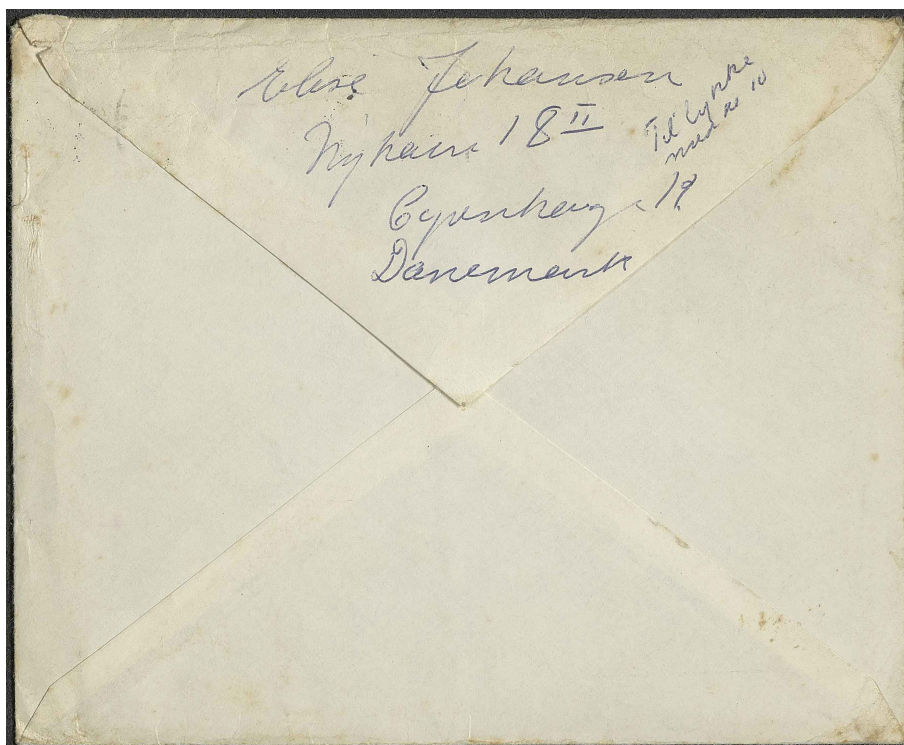 Elise Johansen
Nyhavn 18 II
Copenhavg. K
Danemark
Til lykke
med de 10